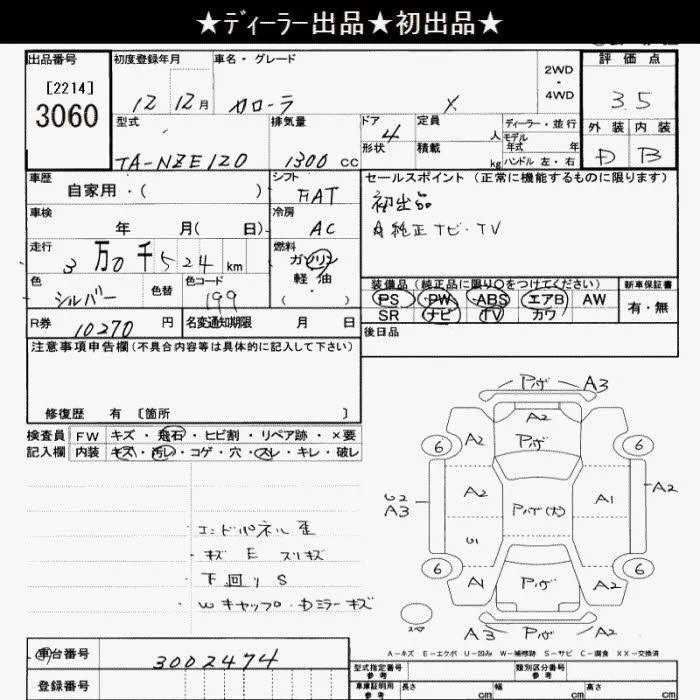 ★ディーラー出品★初出品★
出品番号
[2214]
3060
初度登録年月
12 12月
車名・グレード
カローラ X
2WD
・
4WD
評価点
3.5
外装 内装
D B
型式
TA-NZE120
排気量
1300 cc
ドア 4
形状
定員 人
積載 kg
ディーラー・並行
モデル
年式 年
ハンドル 左・右
車歴
自家用・( )
シフト
FAT
車検
年 月( 日)
冷房
AC
走行
3万0千524km
燃料
ガソリン
軽油
・
( )
色
シルバー
色替
色コード
199
R券
10270 円
名変通知期限 月 日
セールスポイント(正常に機能するものに限ります)
初出品
純正ナビ・TV
装備品(純正品に限り○をつけてください)
PS・PW・ABS・エアB AW
SR ナビ TV カワ
新車保証書
有・無
後日品
注意事項申告欄(不具合内容等は具体的に記入して下さい)
修復歴 有 〔箇所 〕
検査員
記入欄
FW キズ・飛石・ヒビ割・リペア跡・×要
内装 キズ・汚レ・コゲ・穴・スレ・キレ・破レ
エンドパネル歪
キズ E スリキズ
下回り S
Wキャップ・Dミラーキズ
Pハゲ A3
A2
6 A2 Pハゲ 6
U2
A3
A2 Pハゲ(大) A1 A2
U1
6 A1 Pハゲ A2 6
スペア
A3 Pハゲ A2
A-キズ E-エクボ U-凹み W-補修跡 S-サビ C-腐食 XX-交換済
車台番号
3002474
登録番号
型式指定番号
参考
類別区分番号
参考
車庫証明用
参考
長さ cm 幅 cm 高さ cm